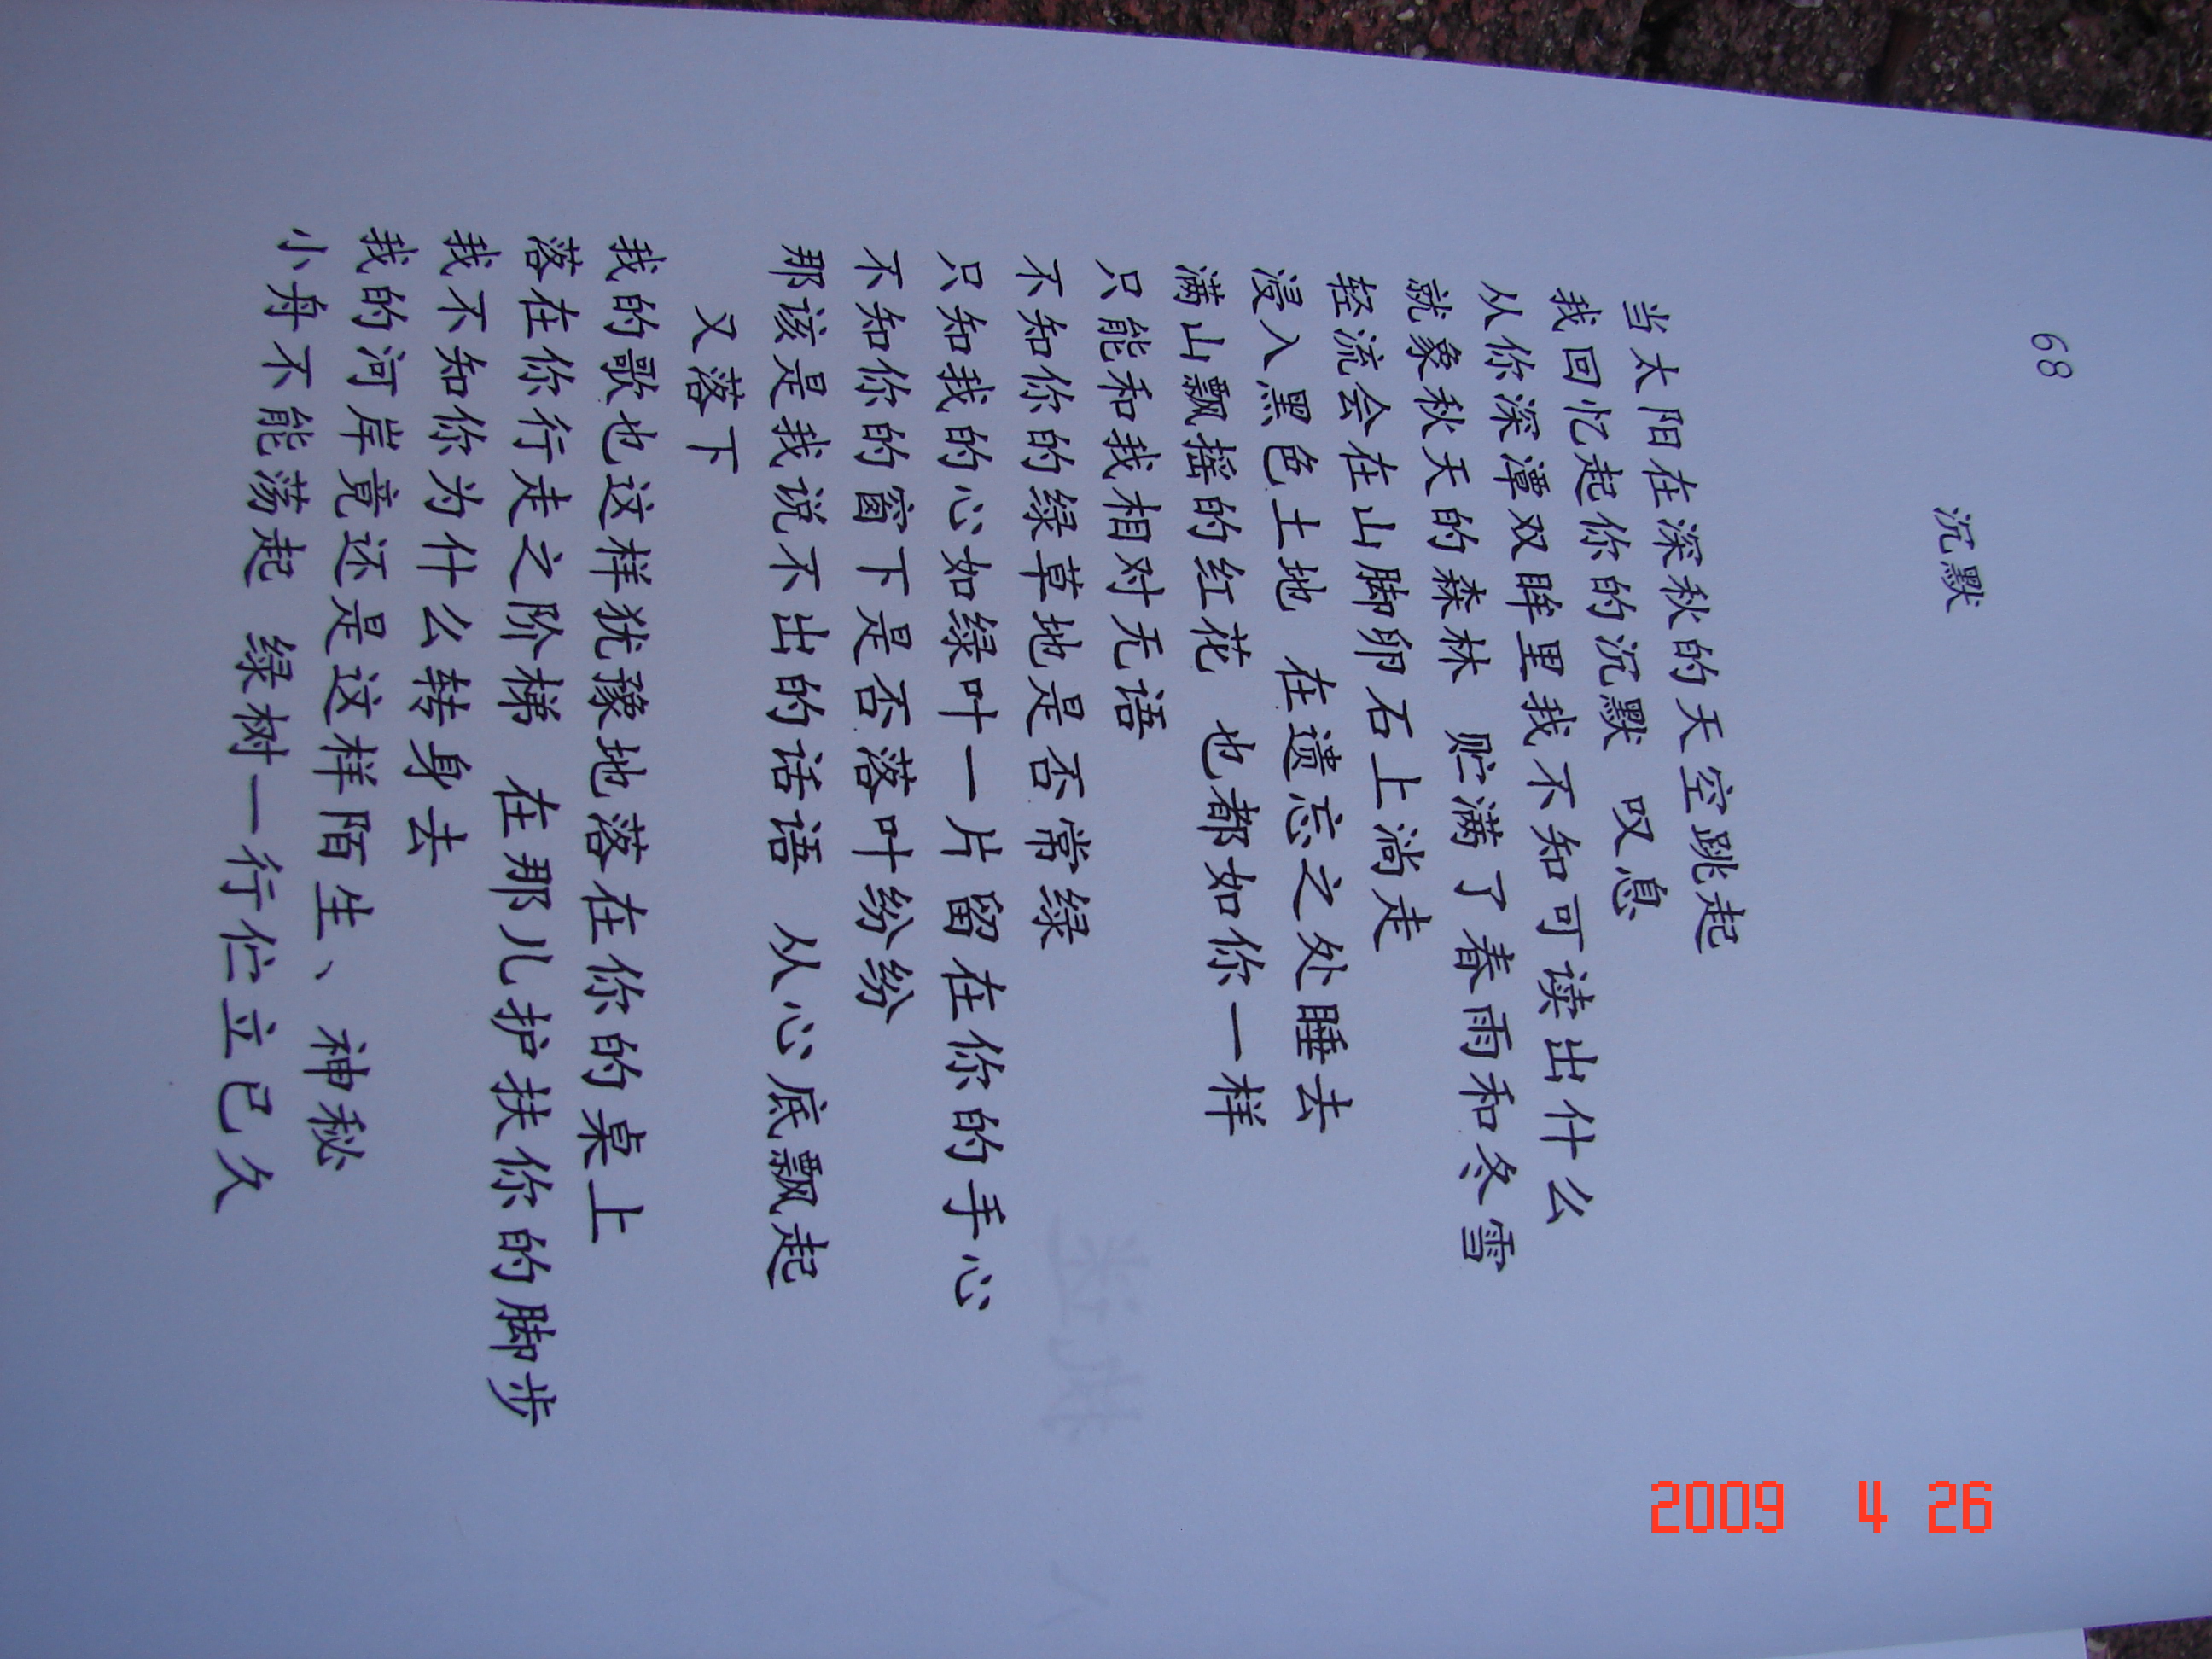 68
沉默
当太阳在深秋的天空跳起
我回忆起你的沉默 叹息
从你深潭双眸里我不知可读出什么
就象秋天的森林 贮满了春雨和冬雪
轻流会在山脚卵石上淌走
浸入黑色土地 在遗忘之处睡去
满山飘摇的红花 也都如你一样
只能和我相对无语
不知你的绿草地是否常绿
只知我的心如绿叶一片留在你的手心
不知你的窗下是否落叶纷纷
那该是我说不出的话语 从心底飘起
又落下
我的歌也这样犹豫地落在你的桌上
落在你行走之阶梯 在那儿护扶你的脚步
我不知你为什么转身去
我的河岸竟还是这样陌生、神秘
小舟不能荡起 绿树一行伫立已久
2009 4 26